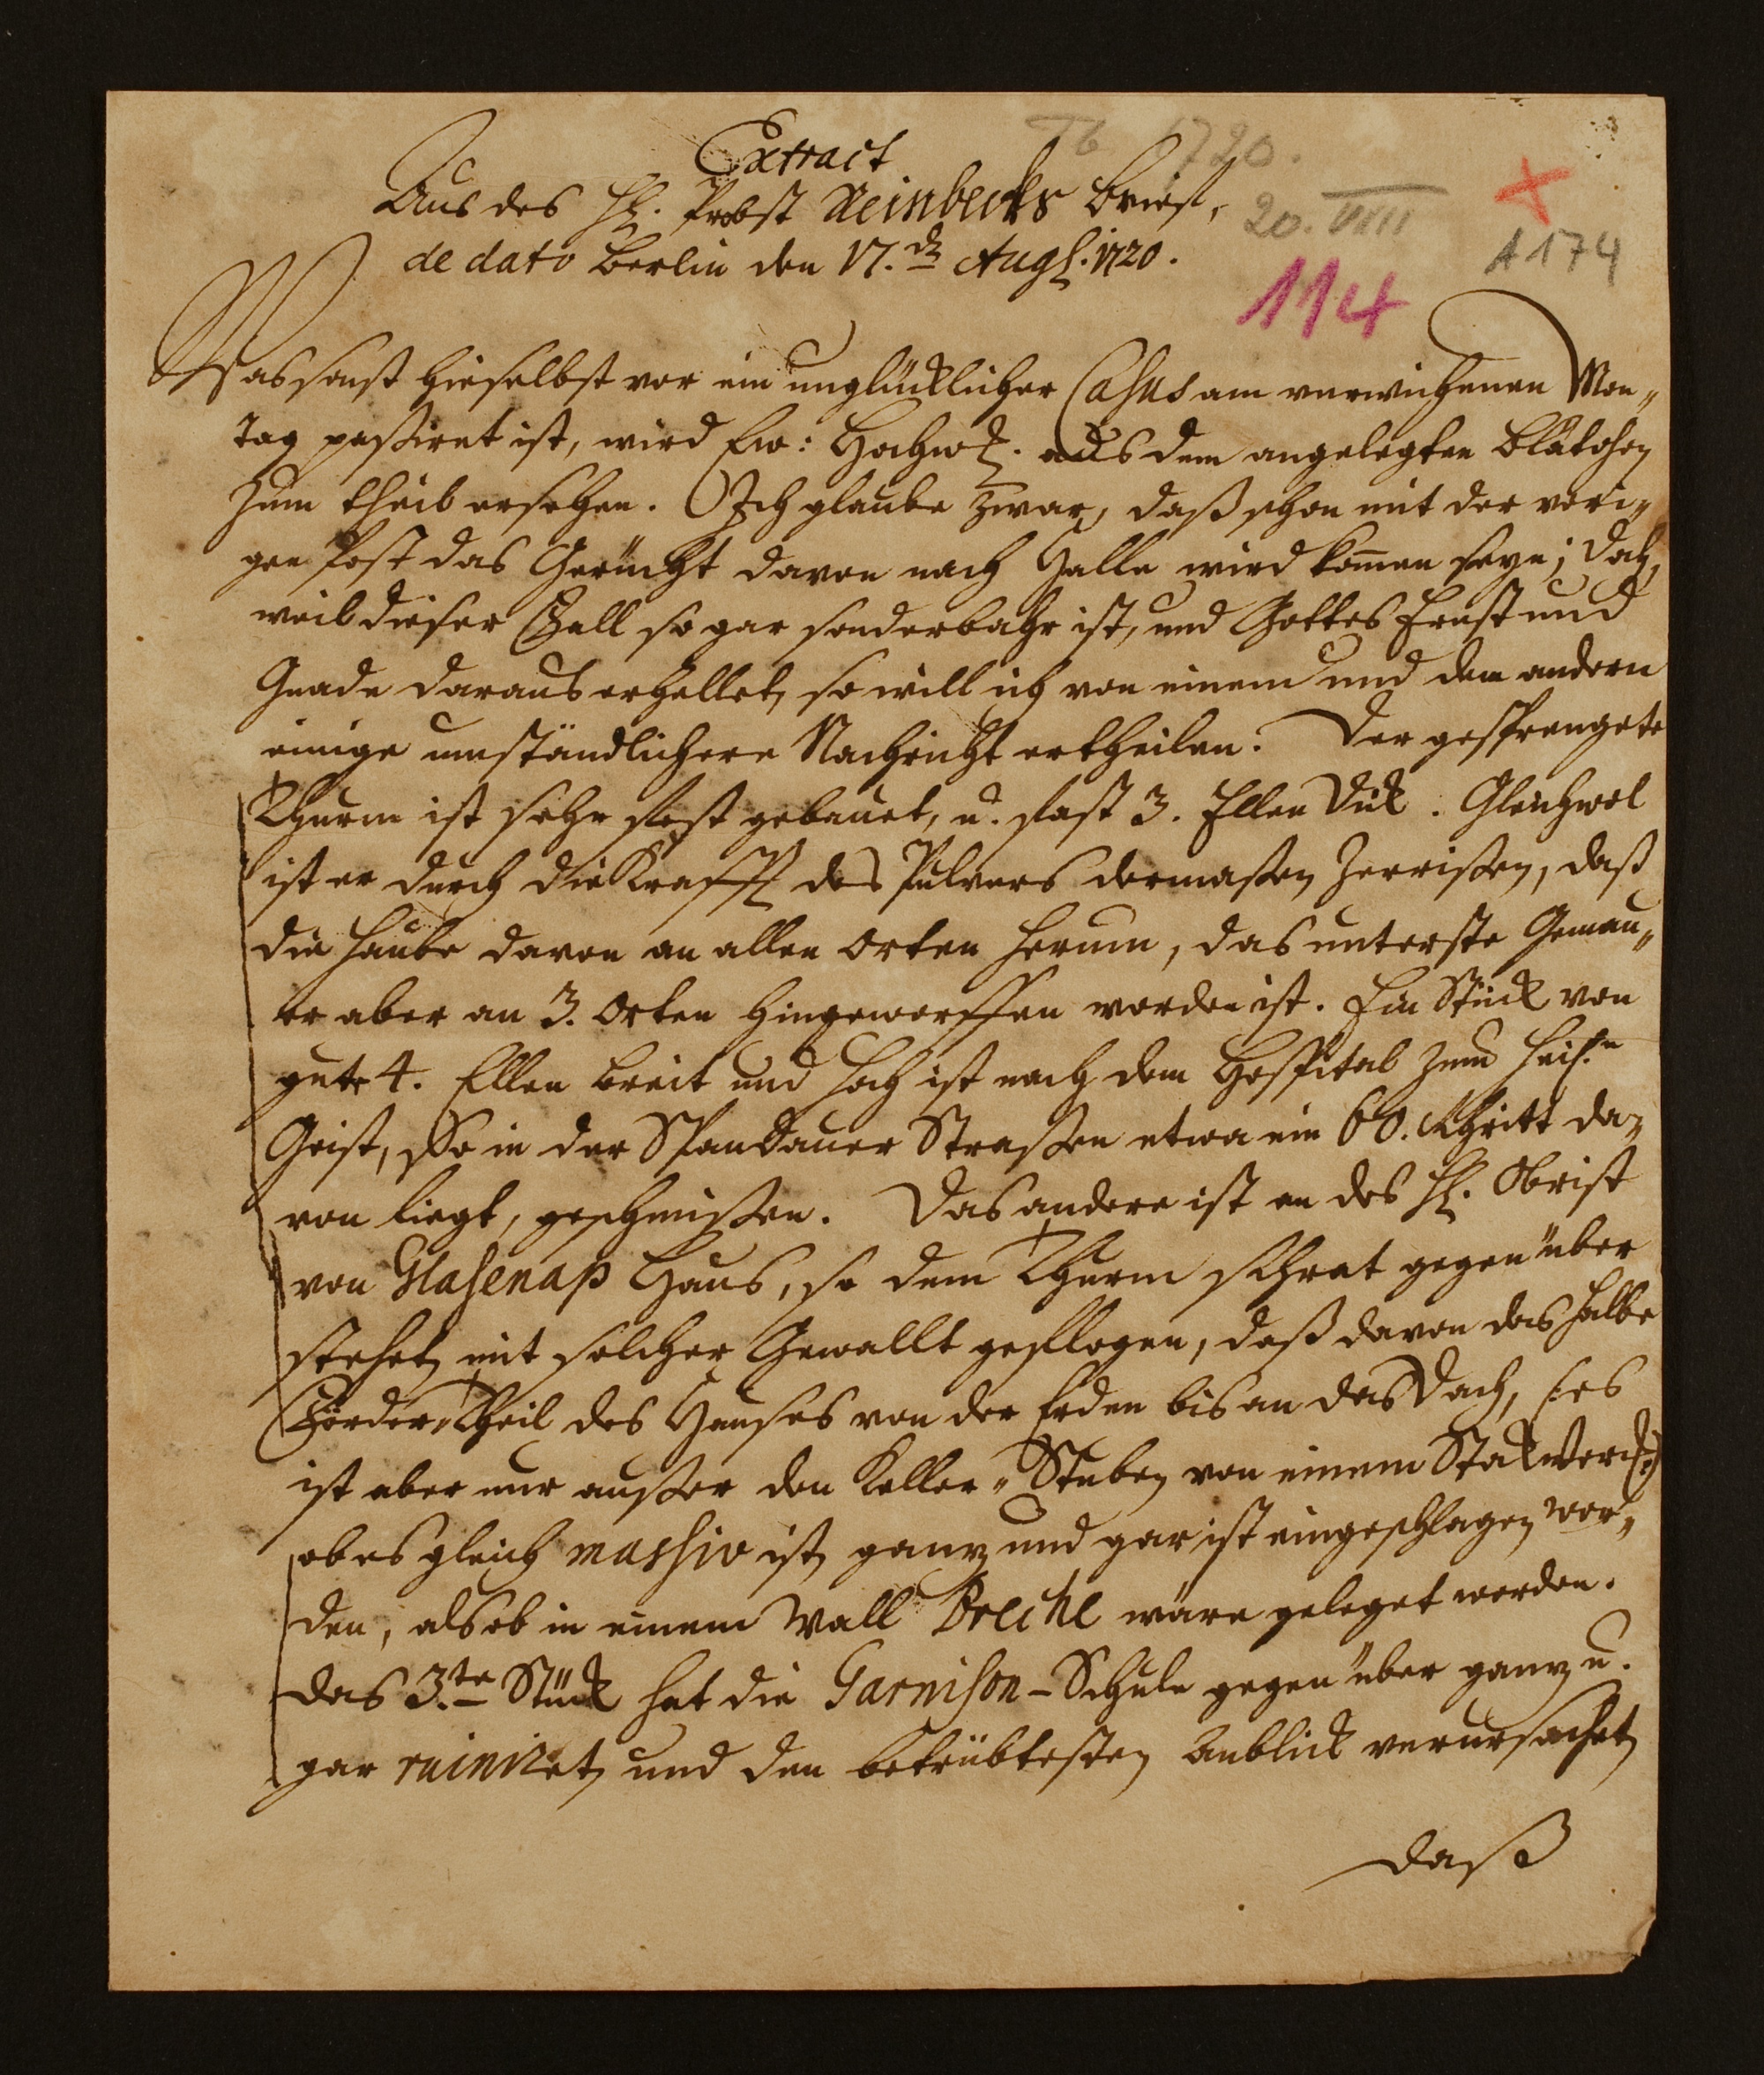 Extract
Tb 1720.
Aus des H. Probst Reinbecks Brief,
20. VIII
de dato Berlin den 17.ⁿ Aug. 1720.
A 174
114
Was sonst hieselbst vor ein unglücklicher Casus am verwichenen Mon„
tag passiret ist, wird Ew: Hochw. aus dem angelegten Blätchen
zum theil ersehen. Ich glaube zwar, daß schon mit der vori„
gen Post das Gerücht davon nach Halle wird kom̄en seyn; doch,
weil dieser Fall so gar sonderbahr ist, und Gottes Ernst und
Gnade daraus erhellet, so will ich von einem und dem andern
einige umständlichere Nachricht ertheilen. Der gesprengete
Thurm ist sehr fest gebauet, u. fast 3. Ellen dick. Gleichwol
ist er durch die Krafft des Pulvers dermaßen zerrißen, daß
die Haube davon an allen Orten herum, das unterste Gemau„
er aber an 3. Orten hingeworffen worden ist. Ein Stück von
gute 4. Ellen breit und hoch ist nach dem Hospital zum Heil.n
Geist, so in der Spandauer Straßen etwa ein 60. Schritt da„
von liegt, geschmißen. Das andere ist an des H. Obrist
von Glasenap Haus, so dem Thurm schrat gegen über
stehet, mit solcher Gewallt geflogen, daß davon das halbe
Förder„Theil des Hauses von der Erden bis an das Dach, (:es
ist aber nur außer den Keller„Stuben von einem Stakwerck:)
ob es gleich massiv ist, ganz und gar ist eingeschlagen wor„
den, als ob in einem Wall Breche wäre geleget worden.
das 3.te Stück hat die Garnison-Schule gegen über ganz u.
gar ruiniret, und den betrübtesten Anblick verursachet,
daß